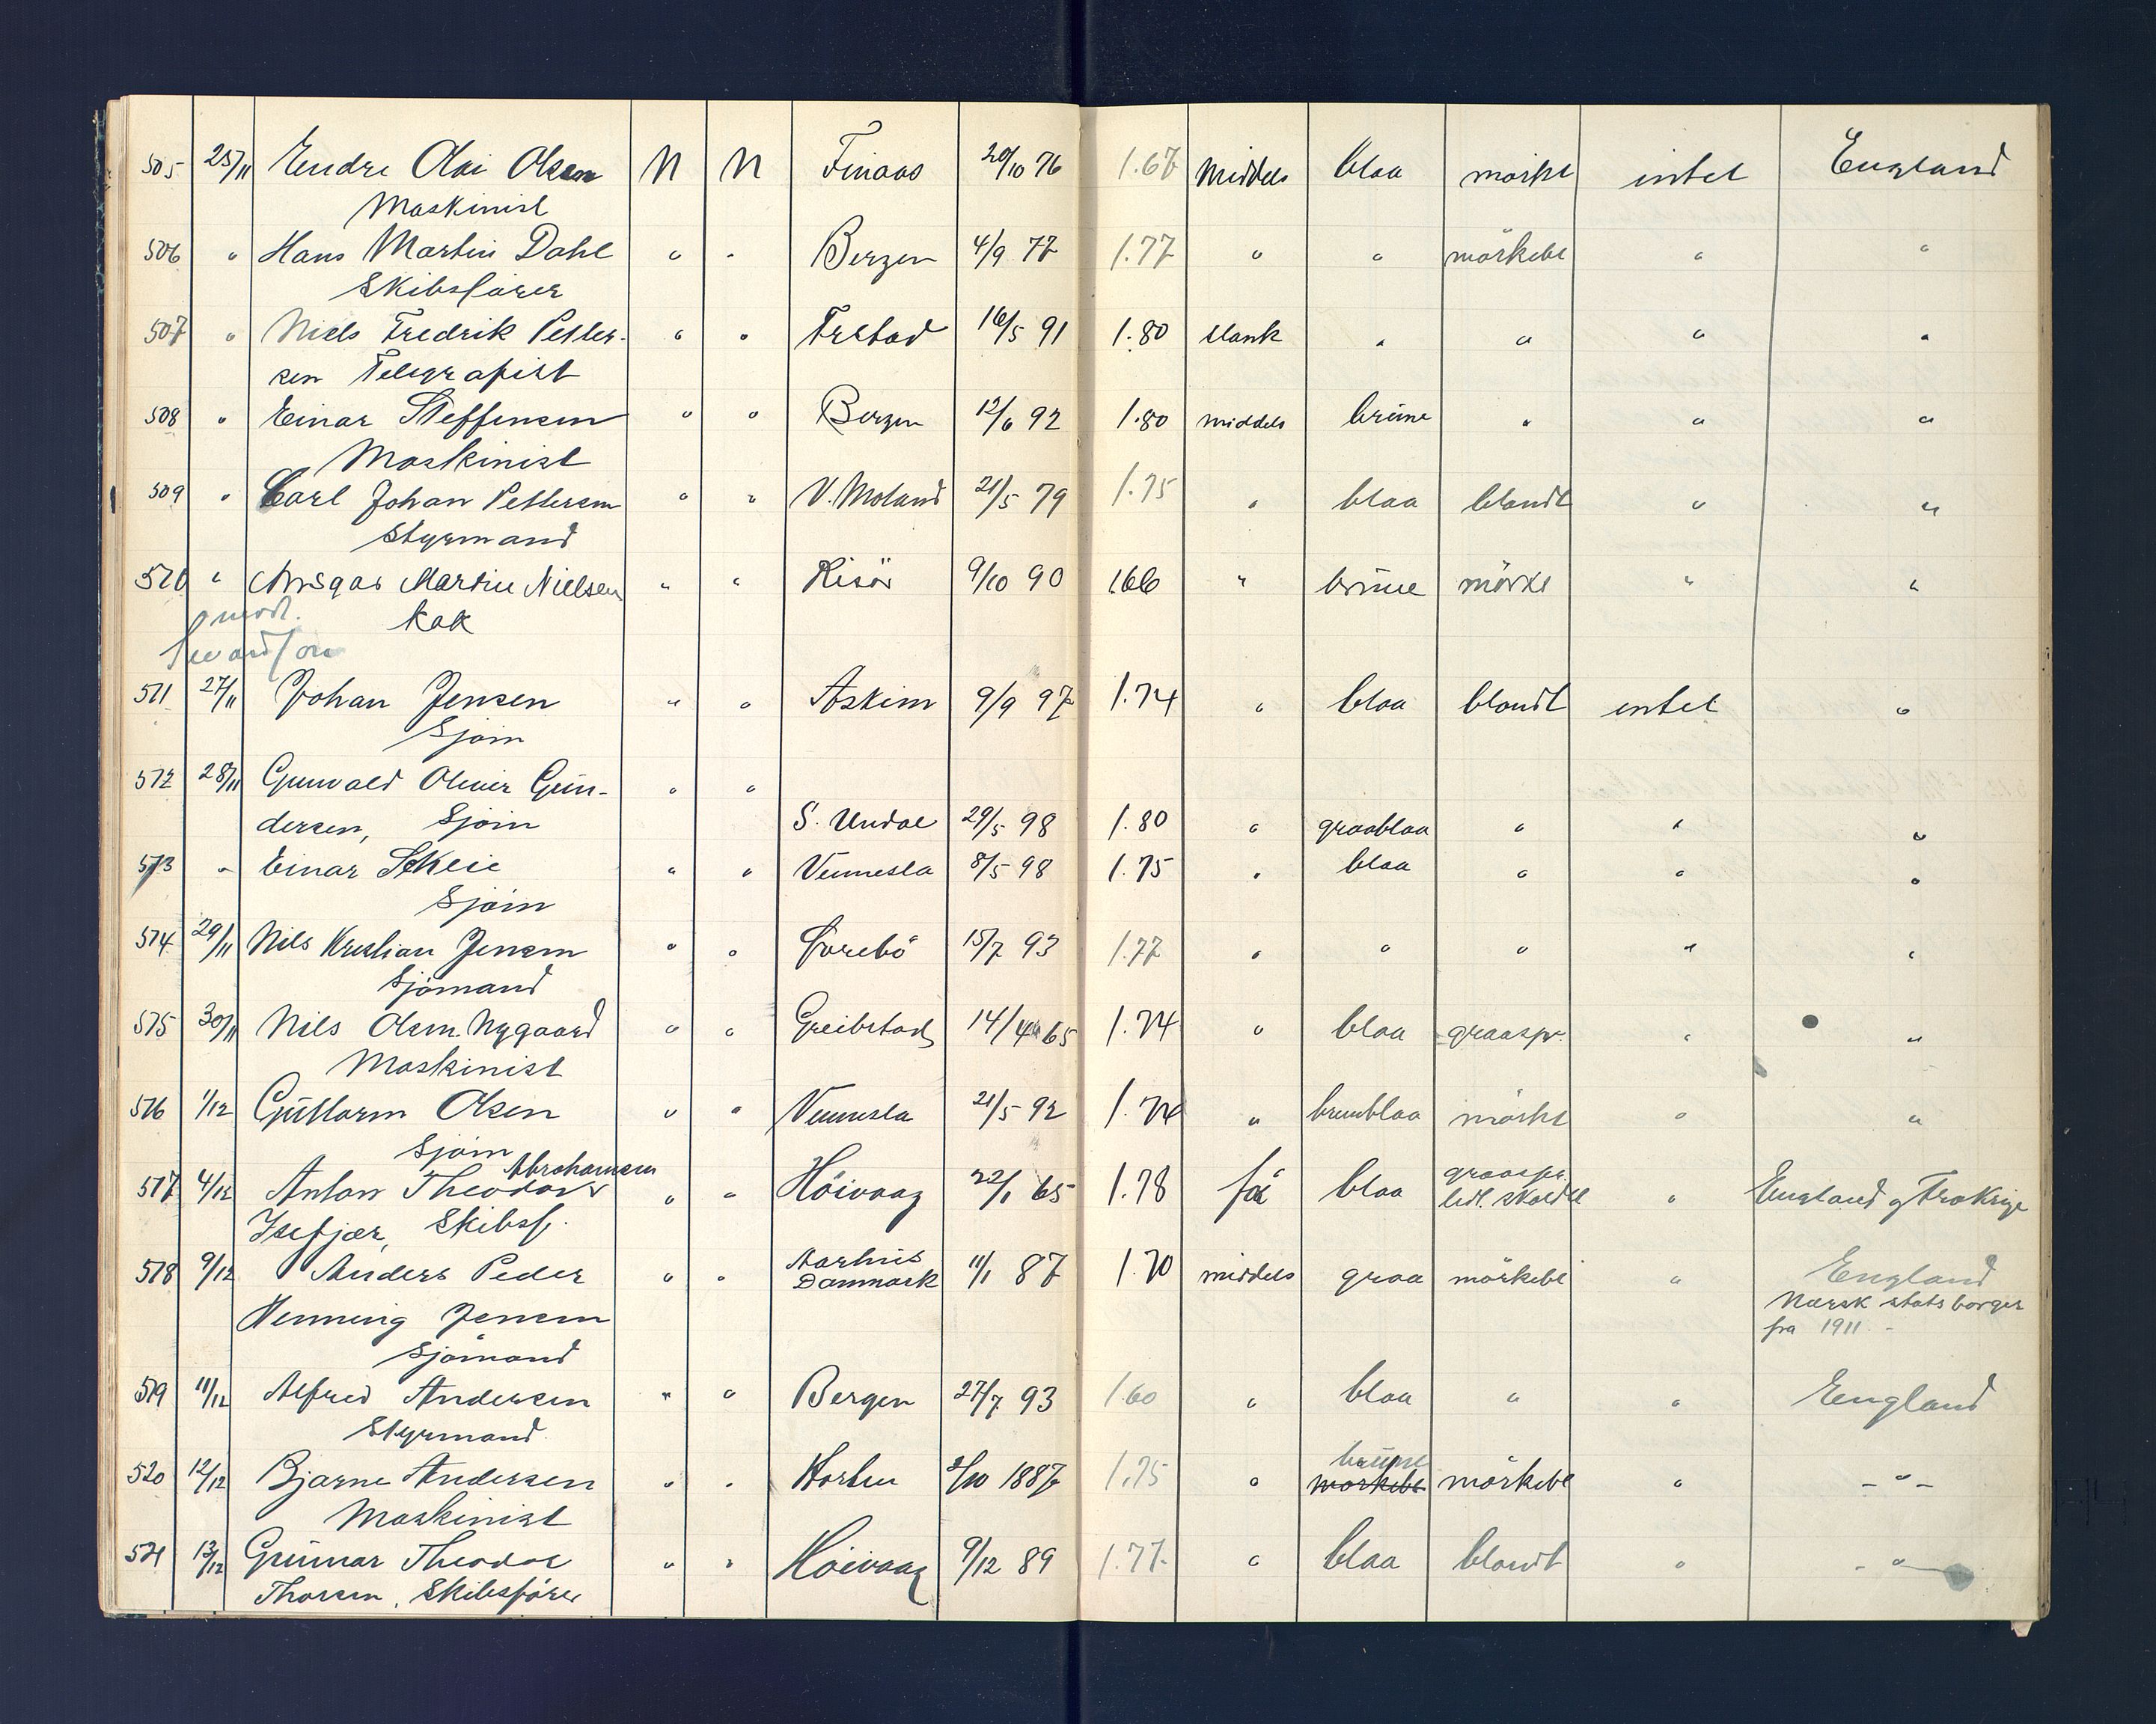 505 25/11 Endre Olai Olsen N N Finaas 20/10 76 1.67 Middels blaa mörkt intet England
Maskinist
506 " Hans Martin Dahl " " Bergen 4/9 77 1.77 " " mörkebl " "
Skibsförer
507 " Niels Fredrik Petter- " " Frstad 16/5 91 1.80 slank " " " "
sen Telegrafist
508 " Einar Steffensen " " Bergen 12/6 92 1.80 middels brune " " "
Maskinist
509 " Carl Johan Pettersen " " V. Moland 21/5 79 1.75 " blaa blondt " "
Styrmand
510 " Ansgar Martin Nielsen " " Risör 9/10 90 166 " brune mörke " "
Kok
511 27/11 Johan Jensen " " Askim 9/9 97 1.74 " blaa blondt intet "
Sjöm
512 28/11 Gunvald Oliver Gun- " "
dersen, Sjöm S. Undal 29/5 98 1.80 " graablaa " " "
513 " Einar Skeie " " Vennesla 8/5 98 1.75 " blaa " " "
Sjöm
514 29/11 Nils Kristian Jensen " " Övrebö 15/7 93 1.77 " " " " "
Sjömand
515 30/11 Nils Olsen Nygaard " " Greibstad 14/4 65 1.74 " blaa graaspr. " "
Maskinist
516 1/12 Guttorm Olsen " " Vennesla 21/5 92 1.74 " brunblaa mörkt " "
Sjöm
Abrahamsen graaspr.
517 4/12 Anton Theodor " " Höivaag 22/1 65 1.78 før blaa lidt skaldet " England og Frakrige
Isefjær, Skibsf.
518 9/12 Anders Peder " " Aarhus 11/1 87 1.70 middels graa mörkebl " England
Danmark Norsk statsborger
Henning Jensen fra 1911 -
Sjömand
519 11/12 Alfred Andersen " " Bergen 27/7 93 1.60 " blaa " " England
Styrmand
brune
520 12/12 Bjarne Andersen " " Horten 2/10 1887 1.75 " mörkebl mörkebl " - " -
Maskinist
521 13/12 Gunnar Theodor " " Höivaag 9/12 89 1.77 " blaa blondt " - " -
Thorsen, Skibsförer